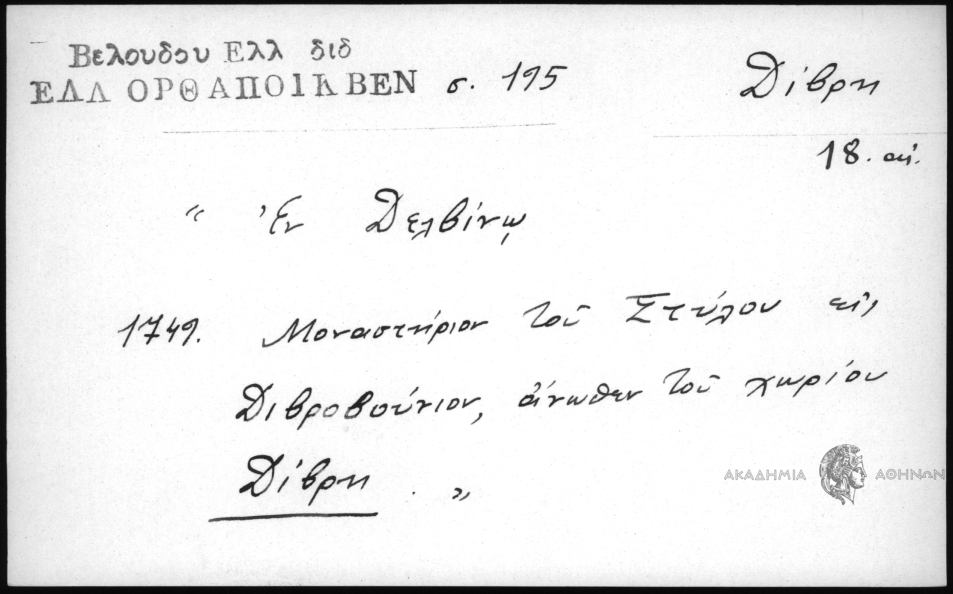 Βελουδου Ελλ διδ
ΕΛΛ ΟΡΘ ΑΠΟΙΚ ΒΕΝ σ. 195
Δίβρη
18. αἰ.
“ Ἐν Δελβίνῳ
1749. Μοναστήριον τοῦ Στύλου εἰς
Διβροβούνιον, ἄνωθεν τοῦ χωρίου
Δίβρη . „
ΑΚΑΔΗΜΙΑ ΑΘΗΝΩΝ